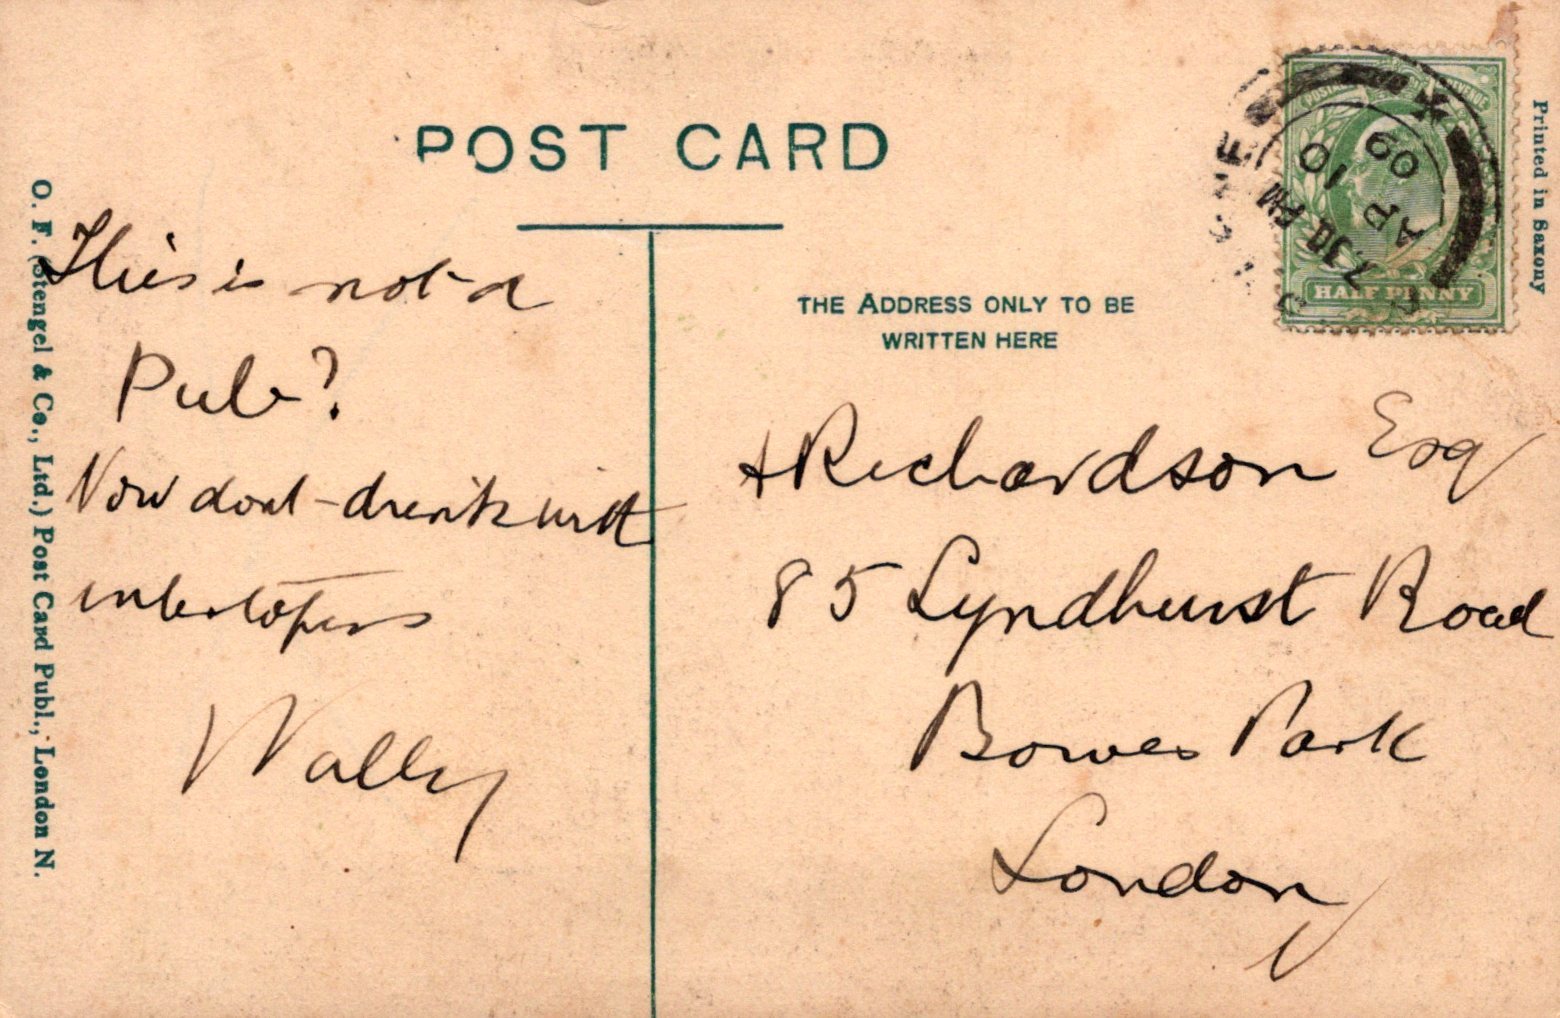 POST CARD
THE ADDRESS ONLY TO BE
WRITTEN HERE
Printed in Saxony
O. F. (Stengel & Co., Ltd.) Post Card Publ., London N.
HALF PENNY
7.30 PM
AP 10
09
This is not a
Pub?
Now dont drink with
interlopers
Wally
Richardson Esq
85 Lyndhurst Road
Bowes Park
London
N